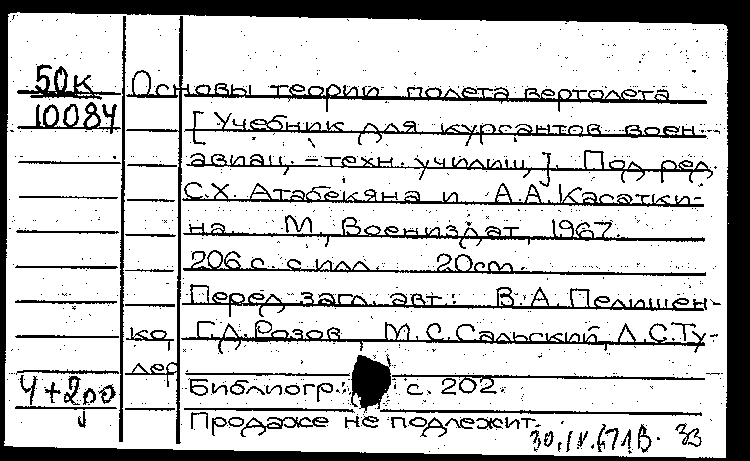 50к
10084
Основы теории полета вертолета
[Учебник для курсантов воен.-
авиац.-техн. училищ,]. Под ред.
С.Х. Атабекяна и А.А. Касатки-
на. М., Воениздат, 1967.
206 с. с илл. 20см.
Перед загл. авт.: В.А. Пелишен-
ко, Г.Д. Розов, М.С. Сальский, Л.С. Ту-
лер
Библиогр.: с. 202.
Продаже не подлежит.
30.IV.671В. 33